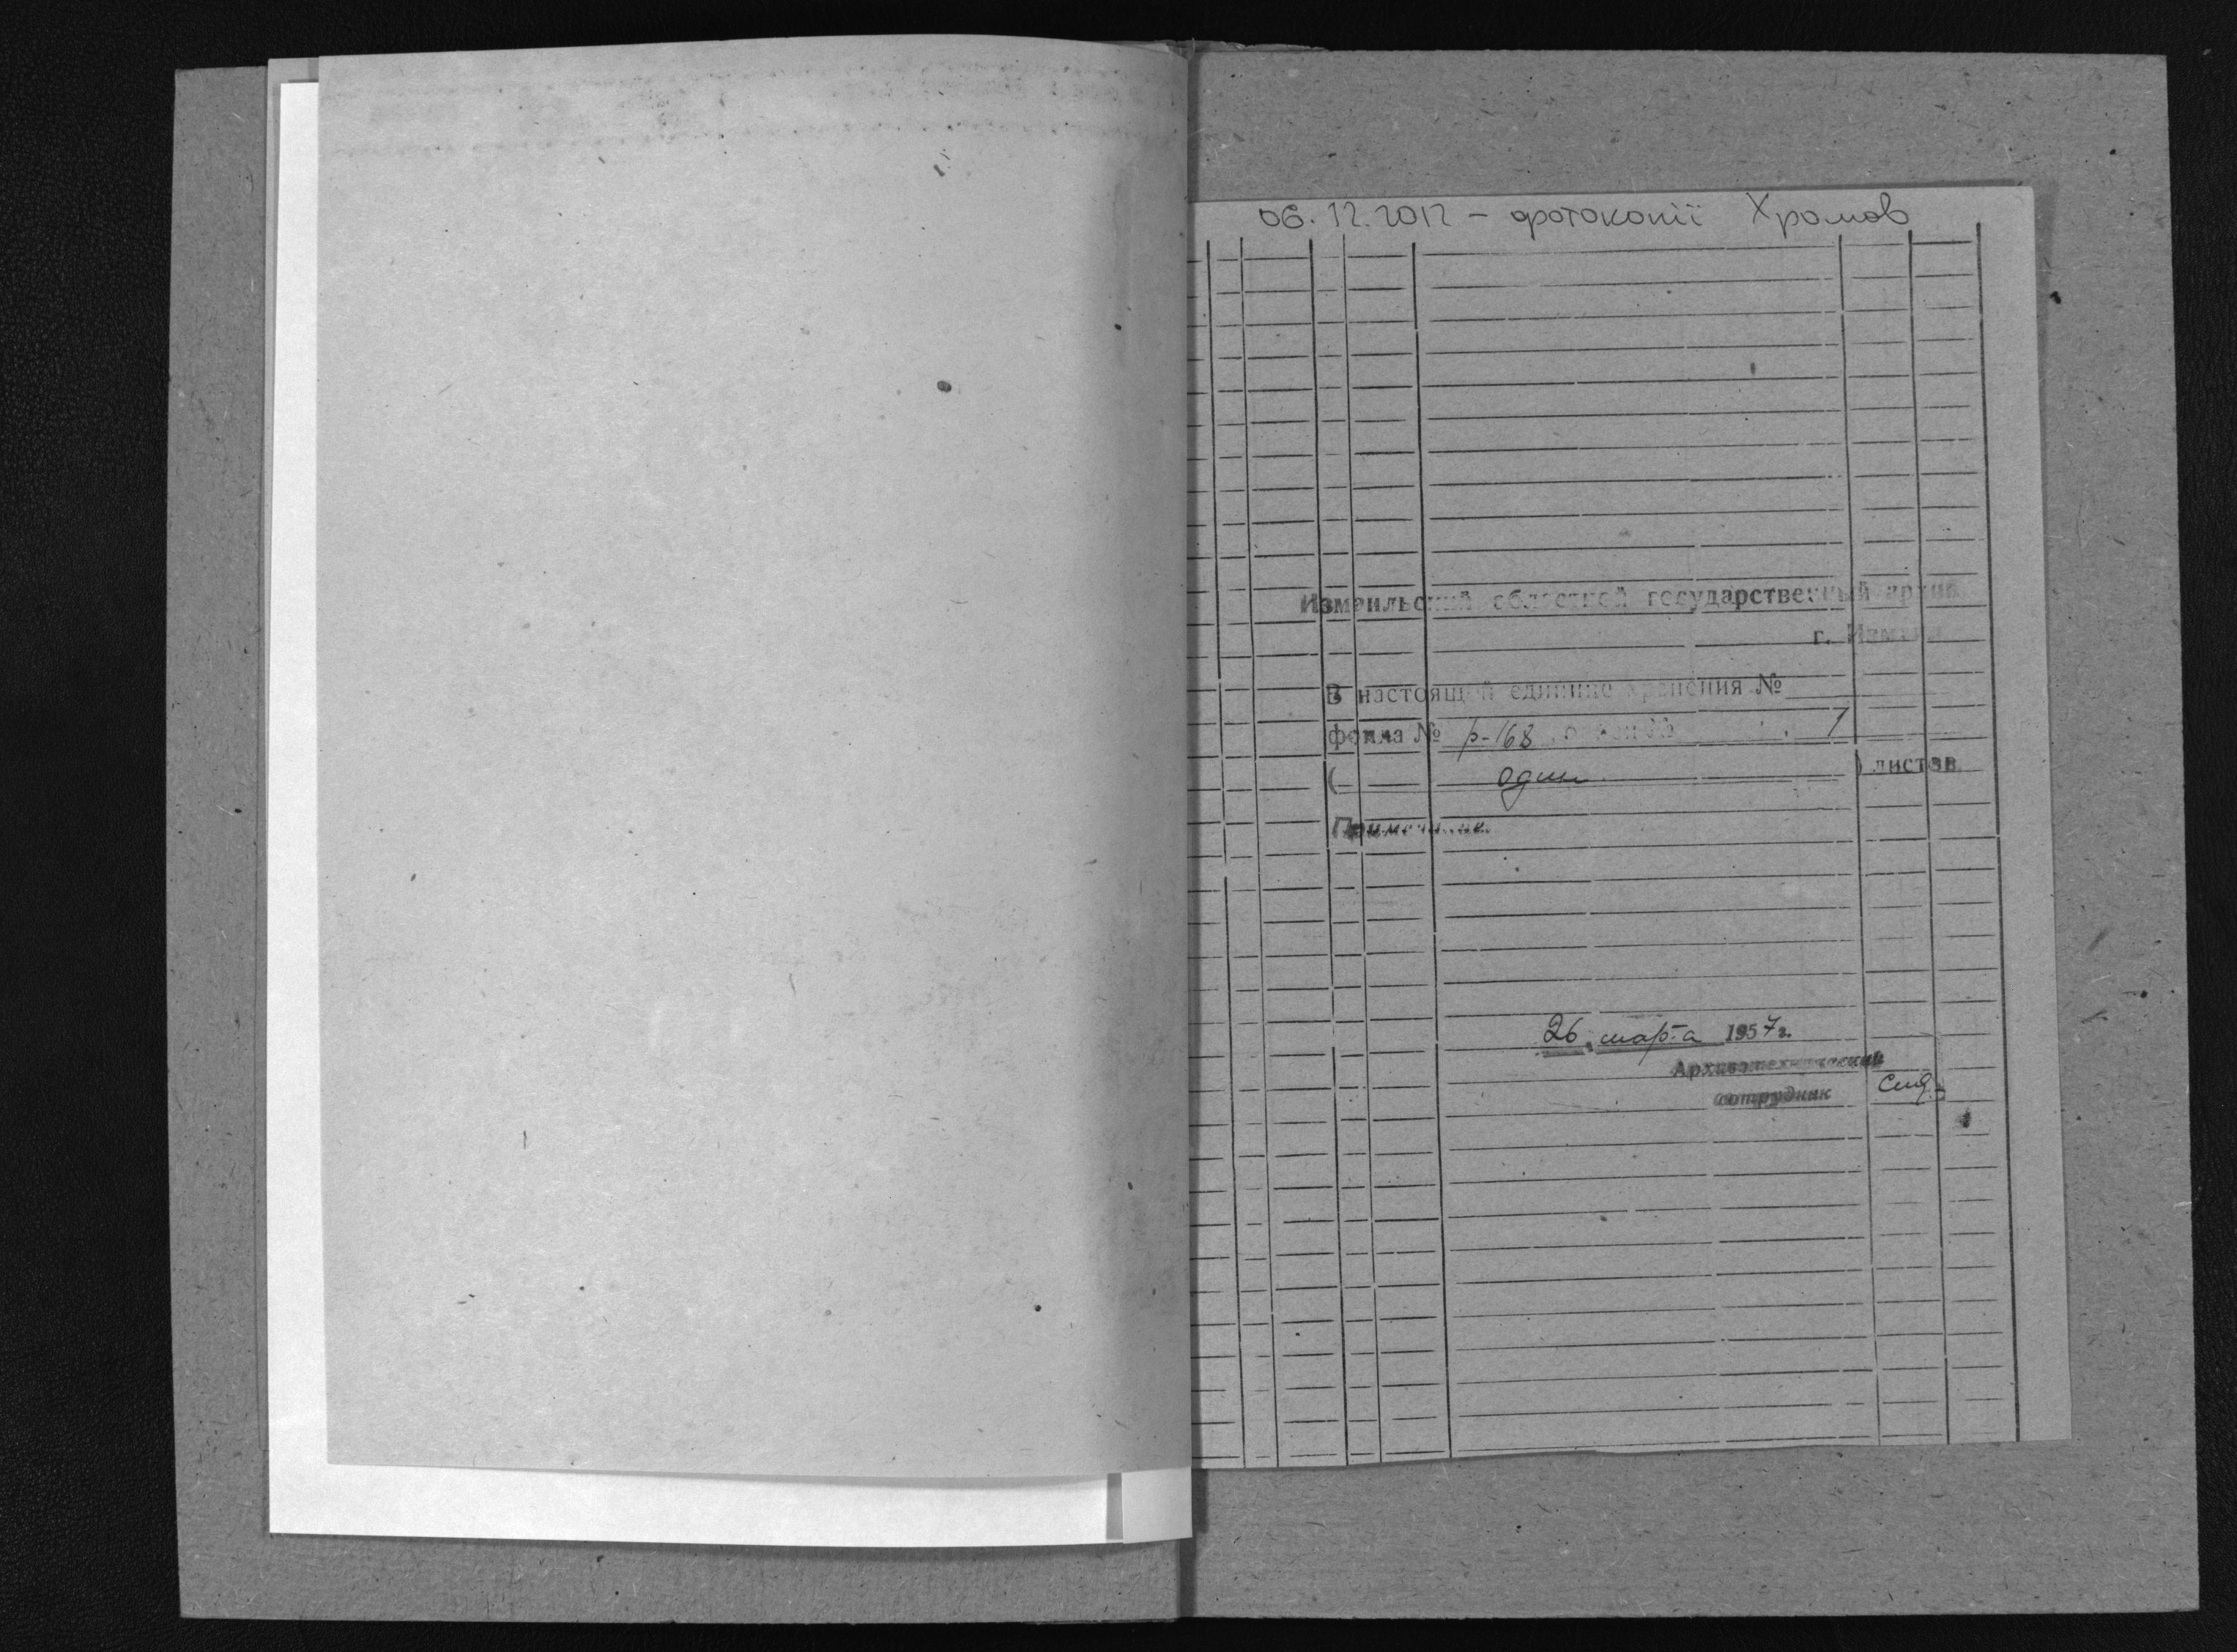 06.12.2012 – фотокопії Хромов
Измаильский областной государственный архив
г. Измаил
В настоящей единице хранения №
фонда № р-168 описи № 1
( один ) листов
Примечание
26 марта 1957г.
Архивотехнический
сотрудник